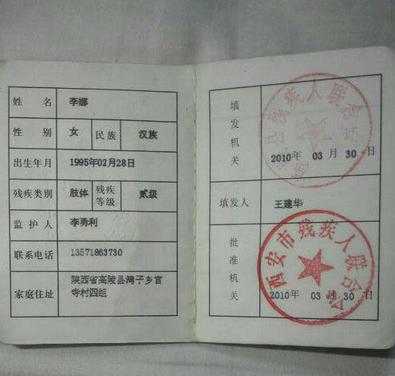 姓 名 李娜
性 别 女 民族 汉族
出生年月 1995年02月28日
残疾类别 肢体 残疾等级 贰级
监 护 人 李勇利
联系电话 13571863730
家庭住址 陕西省高陵县湾子乡官
寺村四组
填发机关
县残疾人联合
2010年 03 月 30 日
填发人 王建华
批准机关
西安市残疾人联合会
2010年 03 月 30 日